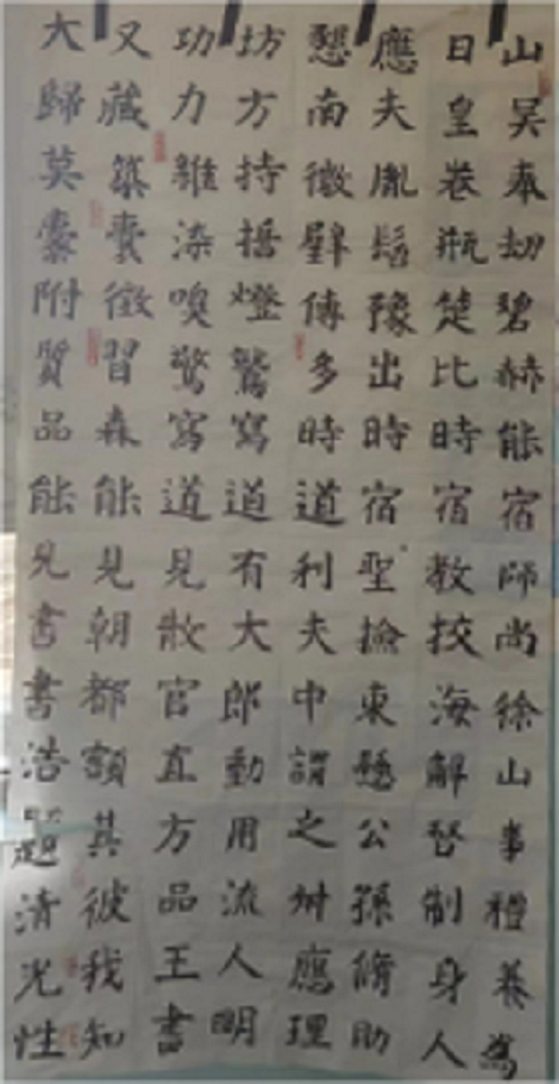 山吴奉劫碧赫能宿師尚徐山事禮養為
日皇卷瓶楚比時宿教按海解督制身人
應夫胤髹豫出時宿聖撿東懸公孫脩助
懇南徵壁傳多時道利夫中謂之州應理
坊方持捂燈驚寫道有大郎動用流人明
功力雖染嗅驚寫道見散官直方品王書
又藏築囊徵習森能見朝都額其彼我知
大歸莫囊附質品能見書書浩題清光性